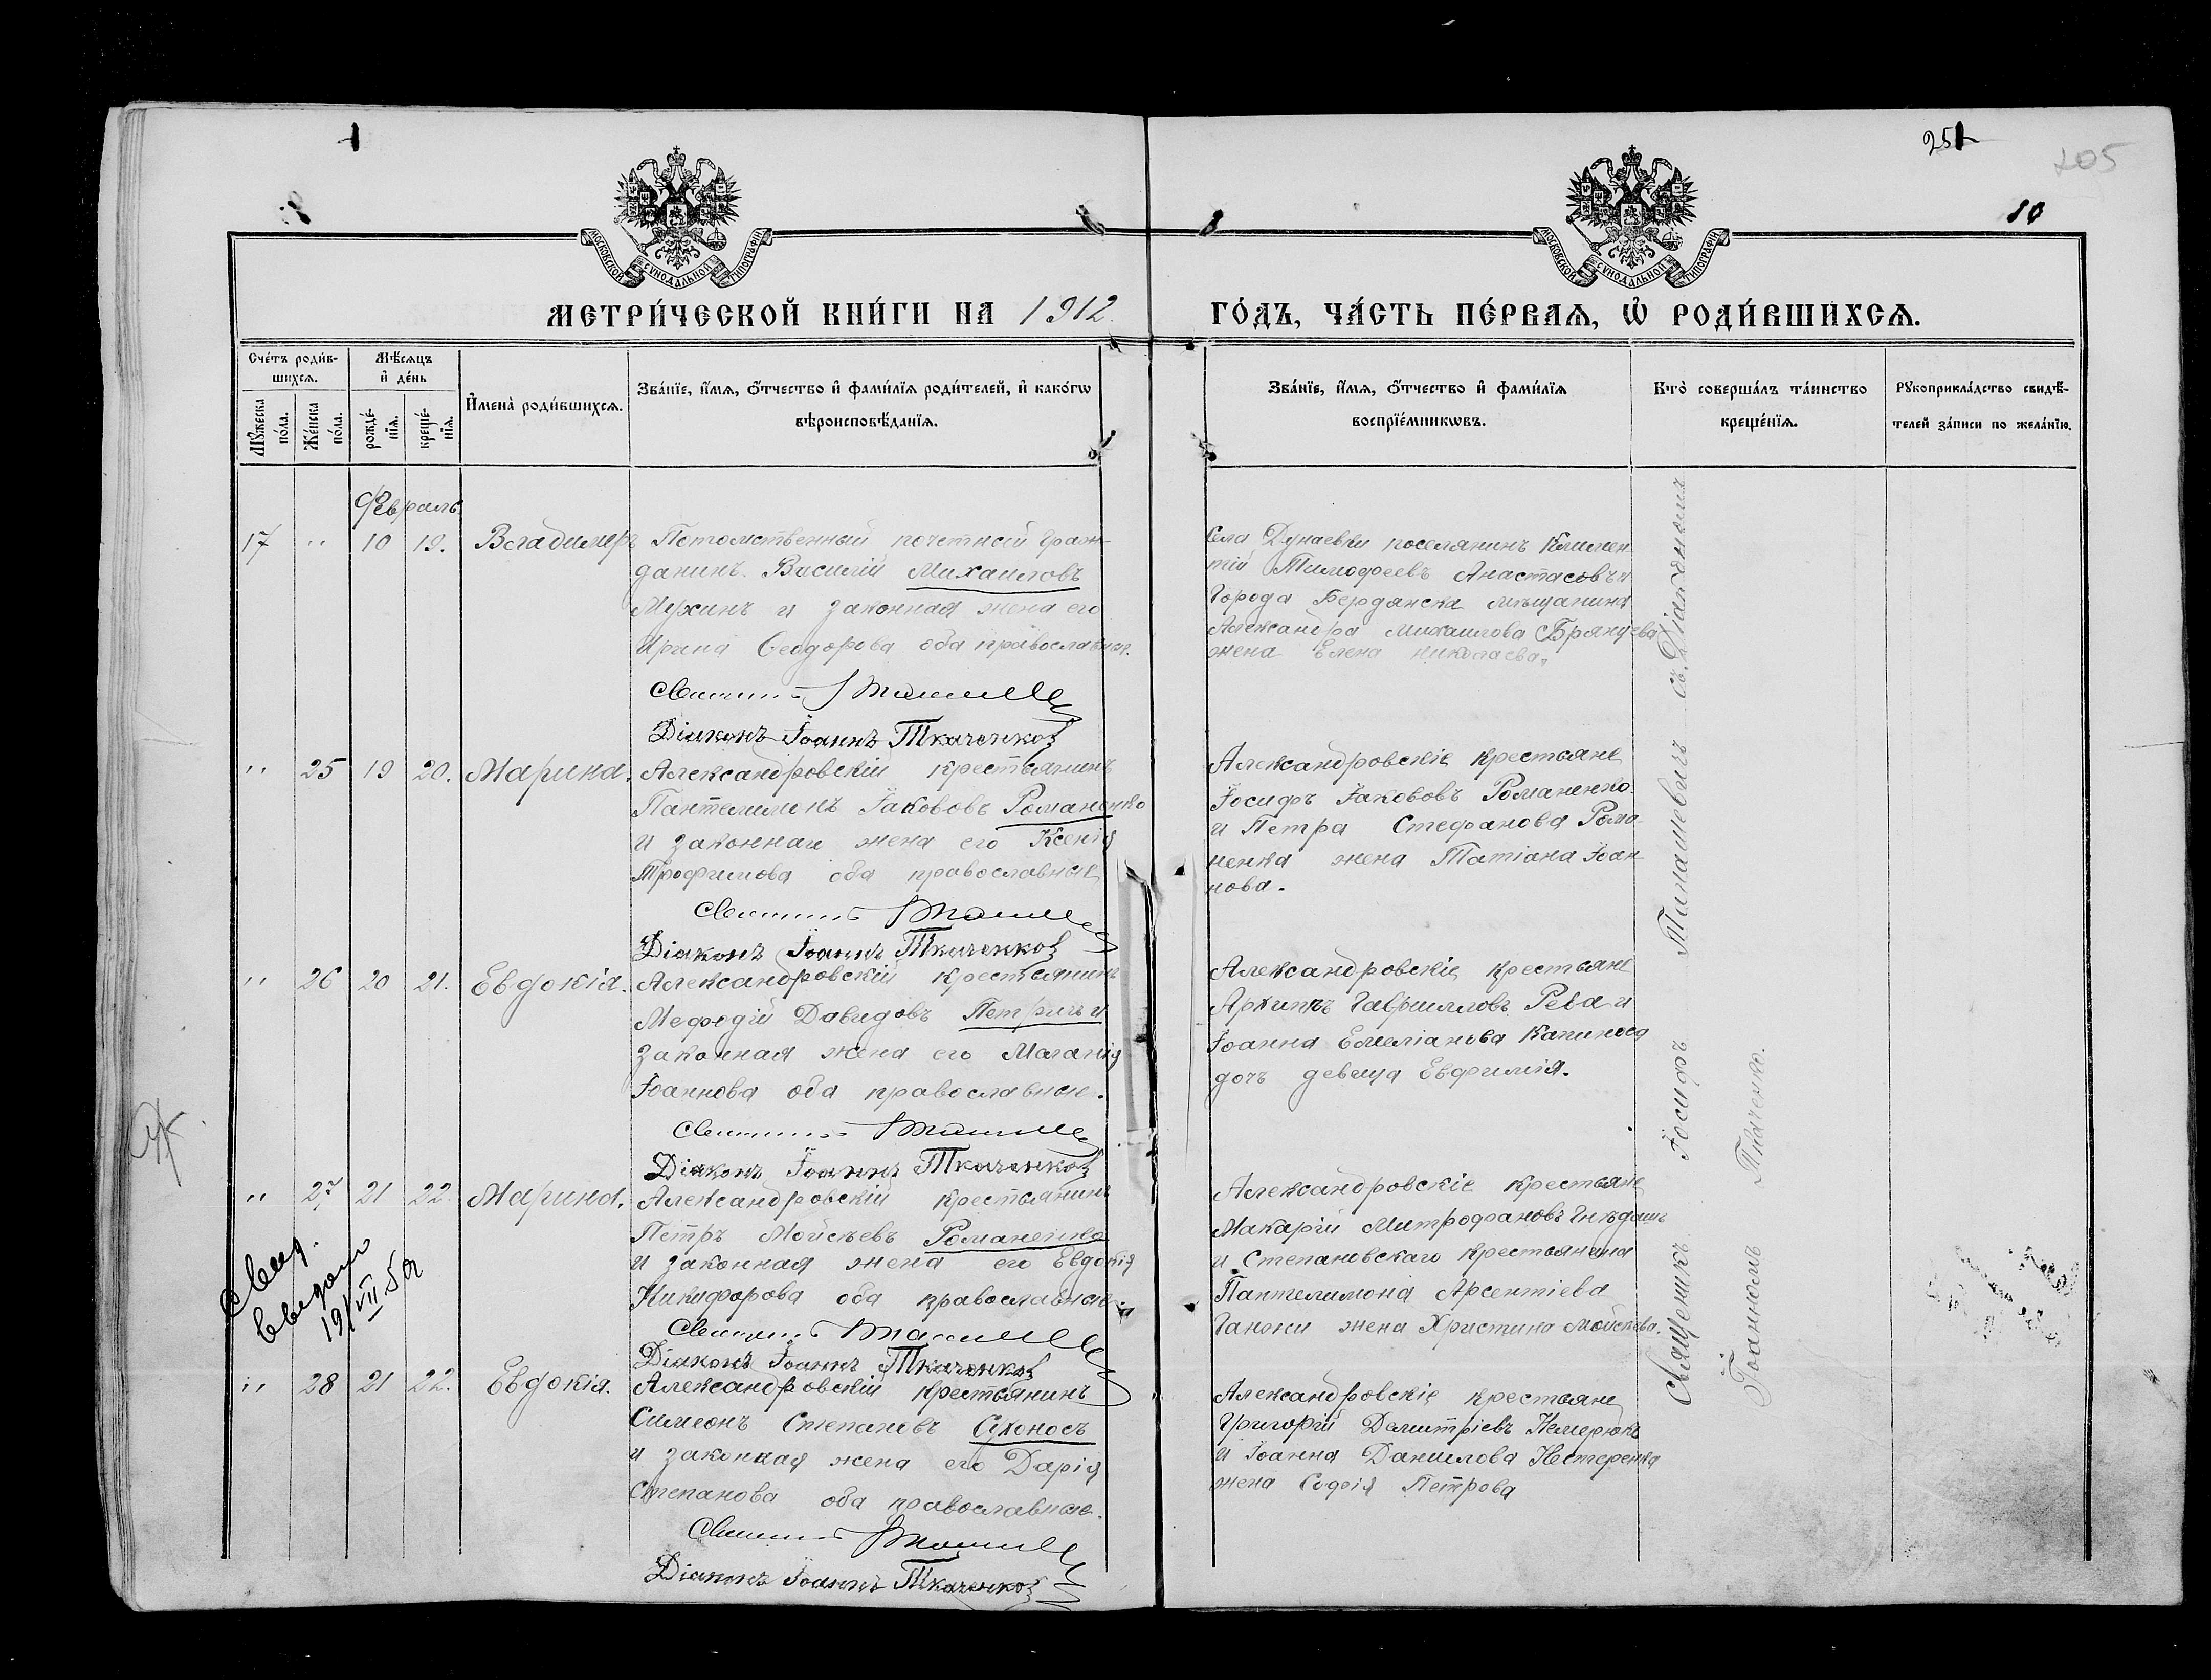 251
205
10
МОСКОВСКОЙ СѴНОДАЛЬНОЙ ТИПОГРАФІИ
МОСКОВСКОЙ СѴНОДАЛЬНОЙ ТИПОГРАФІИ
МЕТРИ́ЧЕСКОЙ КНИ́ГИ НА 1912
ГО́ДЪ, ЧА́СТЬ ПЕ́РВАЯ, Ѡ҆ РОДИ́ВШИХСЯ.
Сче́тъ роди́в-
шихся.
Му́жеска по́ла.
Же́нска по́ла.
Мѣ́сяцъ
и҆ де́нь
рожде́-
нїя.
креще́-
нїя.
И҆мена̀ роди́вшихся.
Зва́нїе, и҆́мя, ѻ҆́тчество и҆ фами́лїя роди́телей, и҆ како́гѡ
вѣроисповѣ́данїя.
Зва́нїе, и҆́мя, ѻ҆́тчество и҆ фами́лїя
воспрїе́мникѡвъ.
Кто̀ соверша́лъ та́инство
креще́нїя.
Рꙋкоприкла́дство свидѣ́-
телей за́писи по жела́нїю.
Февраль
17 " 10 19. Владимеръ Потомственный почетный граж-
данинъ Василій Михаиловъ
Мухинъ и законная жена его
Ирина Ѳеодорова оба православные.
Діаконъ Іоаннъ Ткаченко
Села Дунаевки поселянинъ Климен
тій Тимофеевъ Анастасовъ и
Города Бердянска мѣщанина
Александра Михаилова Брянцева
жена Елена Николаева.
" 25 19 20. Марина. Александровскій крестьянинъ
Пантелимонъ Іакововъ Романенко
и законная жена его Ксенія
Трофимова оба православные
Діаконъ Іоаннъ Ткаченко
Александровскіе крестьяне
Іосифъ Іакововъ Романенко
и Петра Стефанова Рома-
ненка жена Татіана Іоан
нова.
" 26 20 21. Евдокія. Александровскій крестьянинъ
Мефодій Давидовъ Петричъ и
законная жена его Маланія
Іоаннова оба православные.
Діаконъ Іоаннъ Ткаченко
Александровскіе крестьяне
Архипъ Гавриловъ Рева и
Іоанна Емеліанова Капиноса
дочь девица Евфимія.
" 27 21 22 Марина. Александровскій крестьянинъ
Петръ Мойсѣевъ Романенко
и законная жена его Евдокія
Никифорова оба православные.
Діаконъ Іоаннъ Ткаченко
Александровскіе крестьяне
Макарій Митрофановъ Гнѣдашъ
и Степановскаго крестьянина
Пантелимона Арсентіева
Ганжи жена Христина Мойсѣева.
Свид.
выдано
19/VII
" 28 21 22. Евдокія. Александровскій крестьянинъ
Симеонъ Степановъ Сухоносъ
и законная жена его Дарія
Степанова оба православные.
Діаконъ Іоаннъ Ткаченко
Александровскіе крестьяне
Григорій Димитріевъ Немерюкъ
и Іоанна Данилова Нестеренка
жена Софія Петрова
Священникъ Іосифъ съ Діакономъ
Іоанномъ Ткаченко.